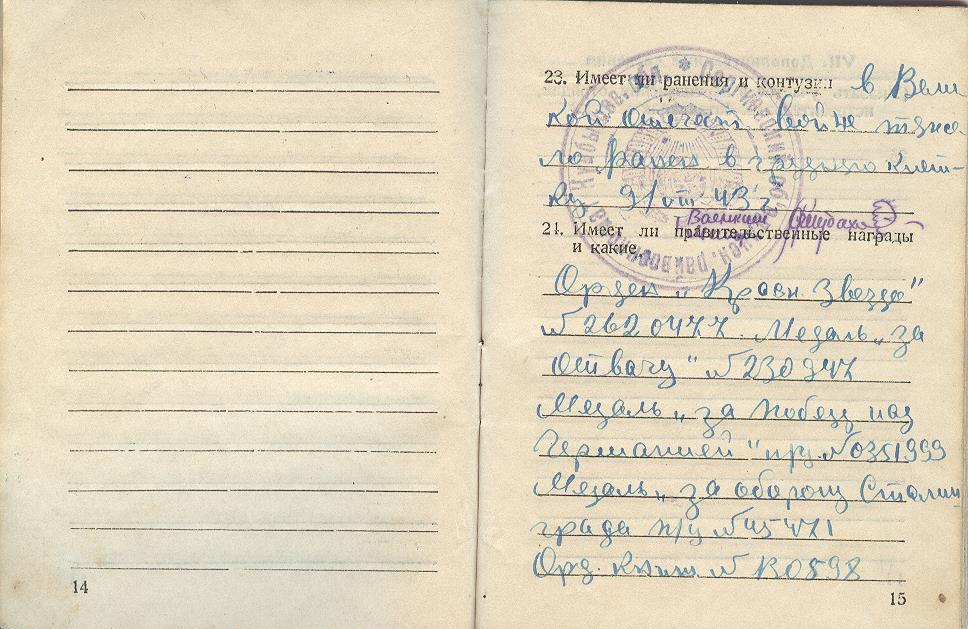 23. Имеет ли ранения и контузии в Вели
кой отечест войне тяже
ло ранен в грудную клет-
ку 9/VIII-43 г
Военком
24. Имеет ли правительственные награды
и какие
Орден „Красн. Звезда"
№ 2620477. Медаль „за
Отвагу" № 230947
Медаль „за победу над
Германией" п/у. № 0351999
Медаль „за оборону Сталин
града п/у № 45471
Орд. книж. № В0598
14
15